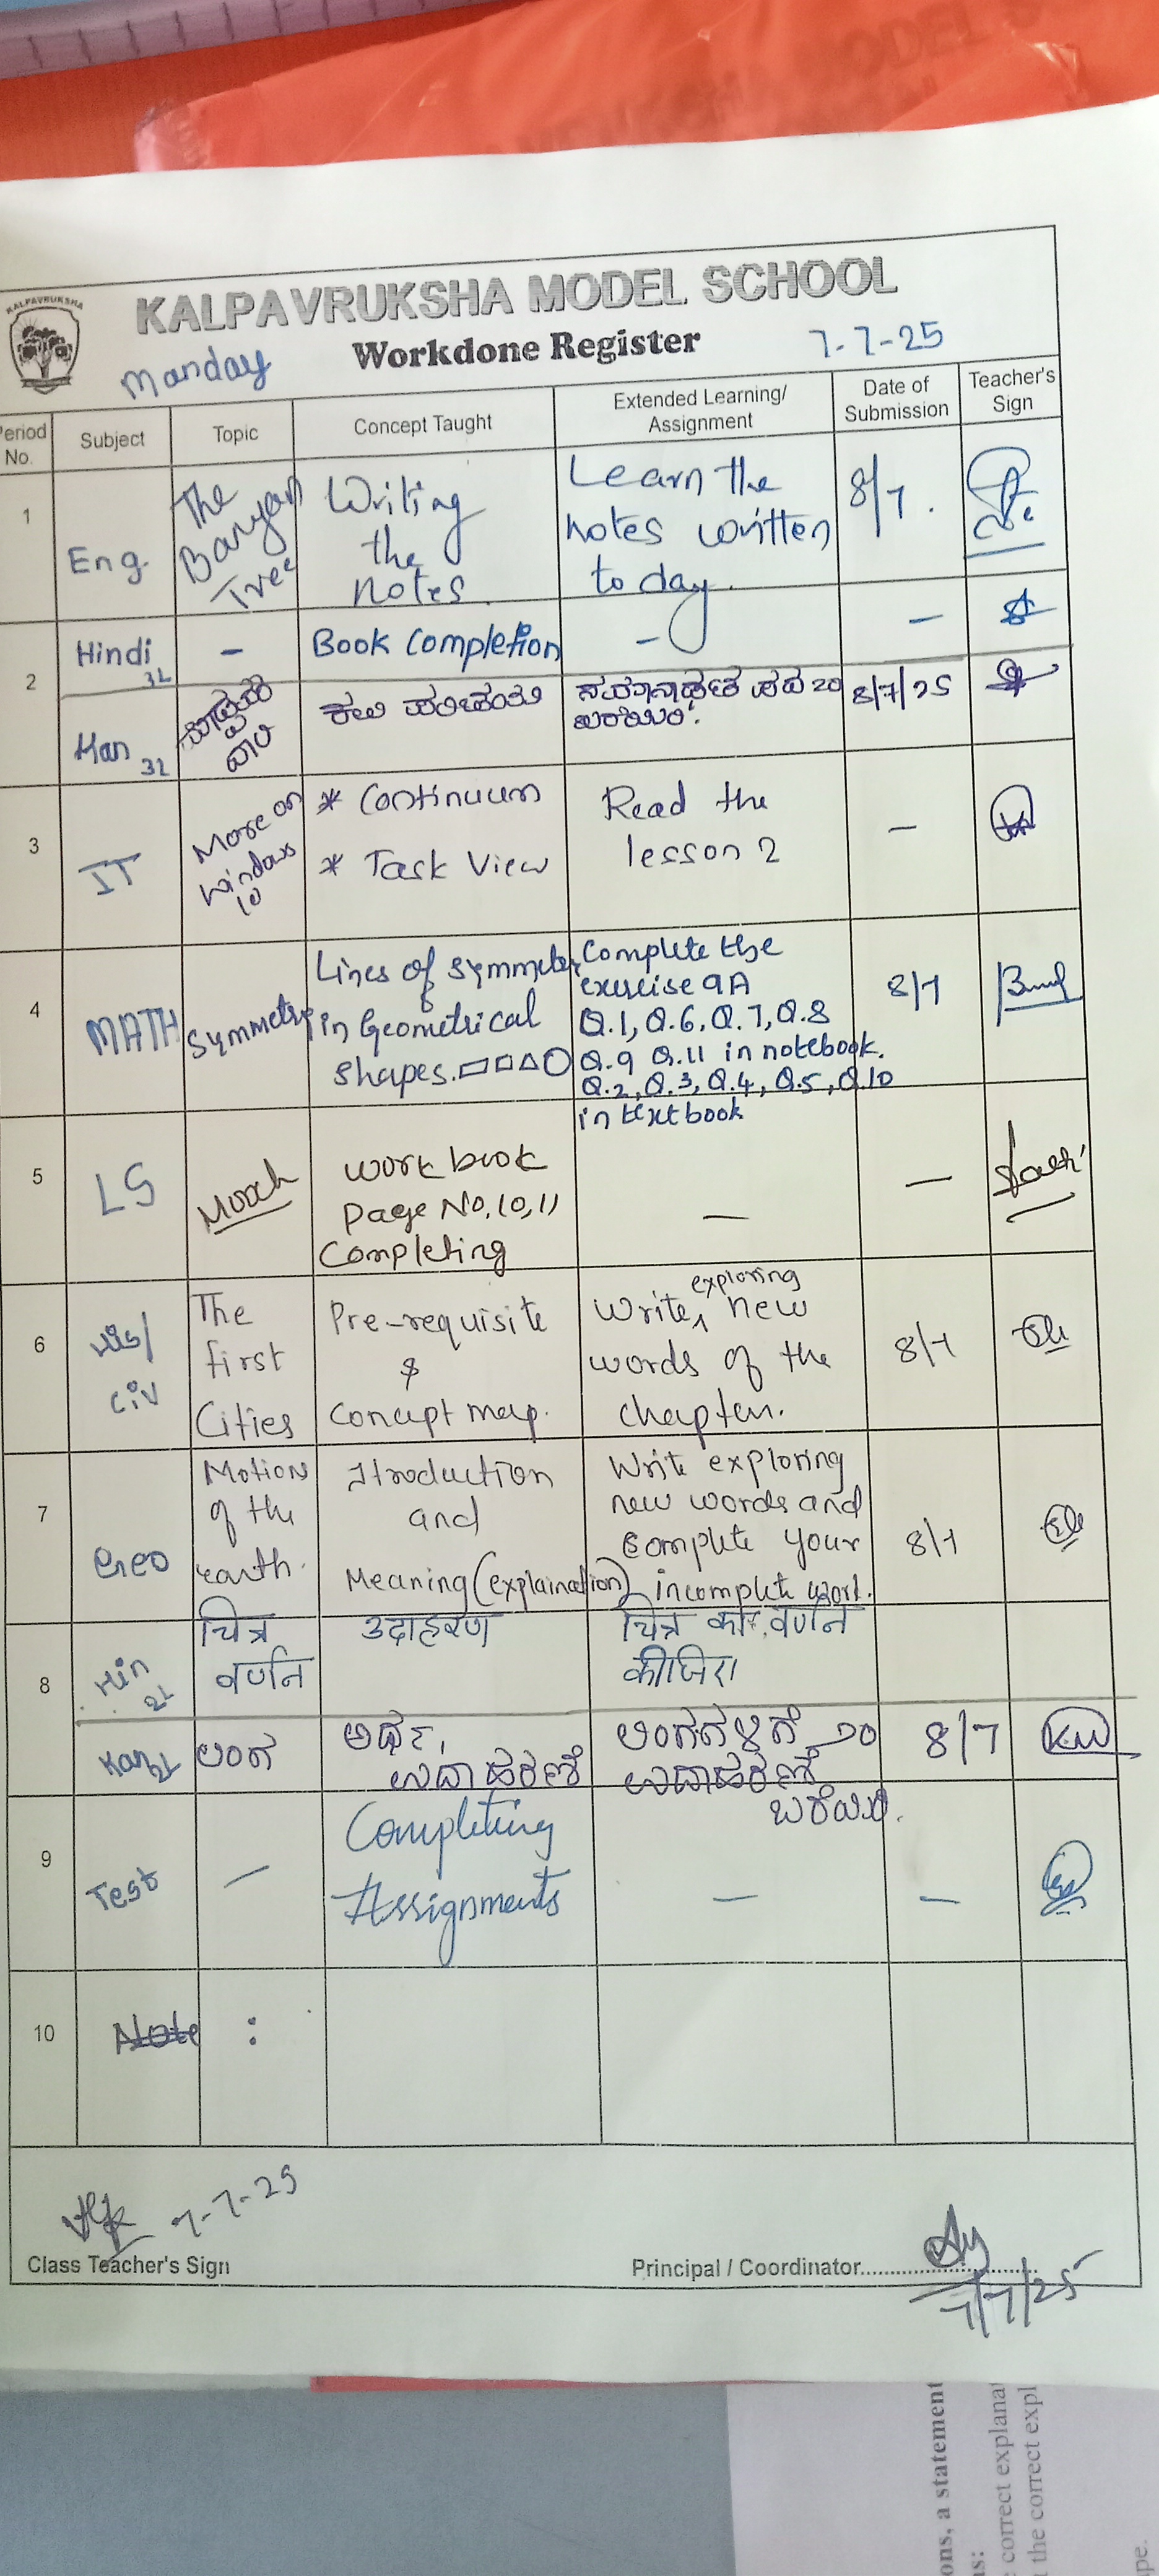 KALPAVRUKSHA
KALPAVRUKSHA MODEL SCHOOL
Manday
Workdone Register
7-7-25
Period No.
Subject
Topic
Concept Taught
Extended Learning/
Assignment
Date of
Submission
Teacher's
Sign
1
Eng.
The
Banyan
Tree
Writing
the
notes.
Learn the
notes written
today.
8/7.
2
Hindi
3L
-
Book Completion
-
-
Kan
3L
ಕವಿ ಪರಿಚಯ
ಸಮಾನಾರ್ಥಕ ಪದ 20
ಬರೆಯಿರಿ.
8/7/25
3
IT
More on
Windows
10
* Continuum
* Task View
Read the
lesson 2
-
4
MATH
Symmetry
Lines of Symmetry
in Geometrical
shapes.
Complete the
exercise 9A
Q.1, Q.6, Q.7, Q.8
Q.9 Q.11 in notebook.
Q.2, Q.3, Q.4, Q.5, Q.10
in textbook
8/7
5
LS
Work book
Page No, 10, 11
Completing
-
-
6
His/
Civ
The
first
Cities
Pre-requisite
&
Concept map.
exploring
Write, new
words of the
chapter.
8/7
7
Geo
Motion
of the
earth.
Itroduction
and
Meaning (explaination)
Write exploring
new words and
complete your
incomplete work.
8/7
8
Hin
2L
चित्र
वर्णन
उदाहरण
चित्र का वर्णन
कीजिए।
Kan 2L
ಲಿಂಗ
ಅರ್ಥ,
ಉದಾಹರಣೆ
ಲಿಂಗಗಳಿಗೆ 10
ಉದಾಹರಣೆ
ಬರೆಯಿರಿ.
8/7
9
Test
-
Completing
Assignments
-
-
10
Note :
7-7-25
Class Teacher's Sign
Principal / Coordinator
7/7/25
ons, a statement
correct explana
the correct expl